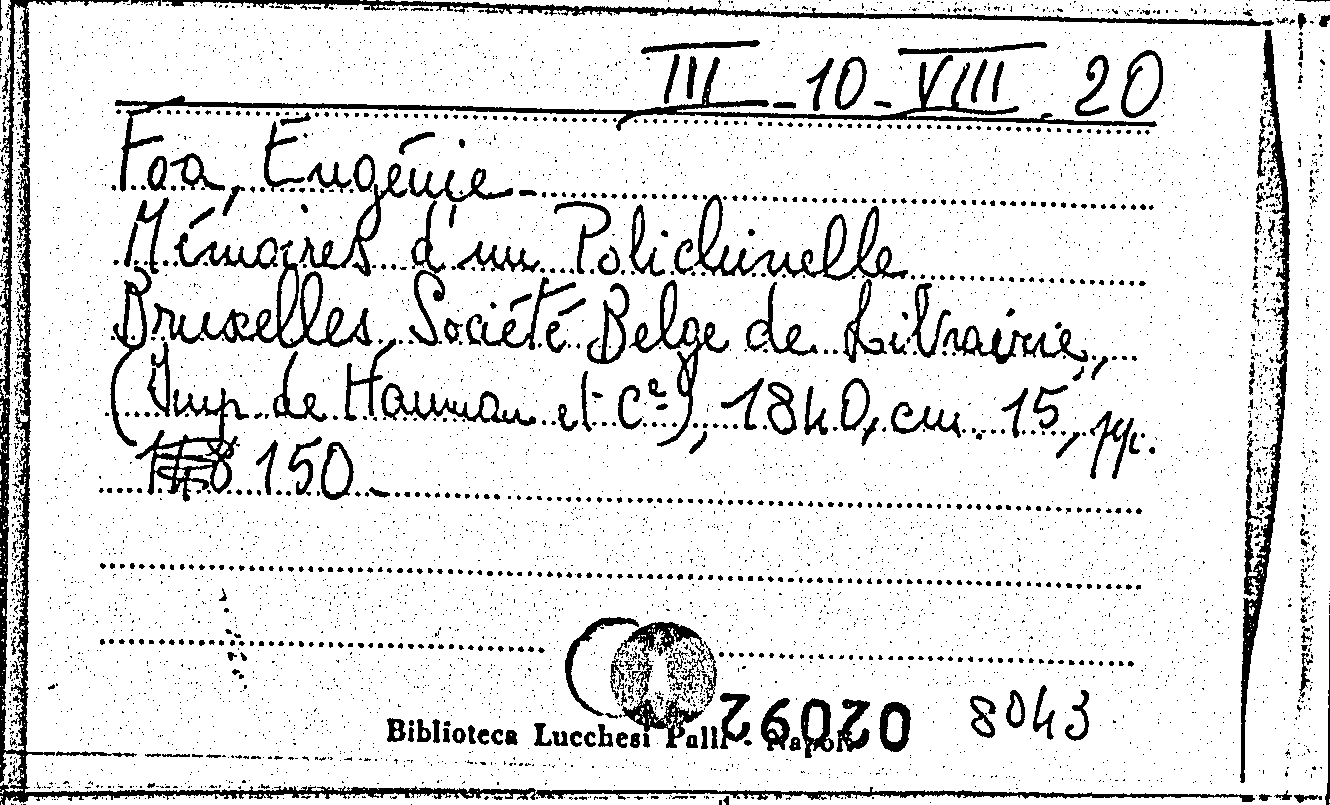 III - 10 - VIII . 20
Foa, Eugénie -
Mémoires d'un Polichinelle
Bruxelles, Société Belge de Librairie,
(Imp. de Hauman et Cᵉ), 1840, cm. 15, pp.
150 -
Biblioteca Lucchesi Palli - Napoli
029020 8043